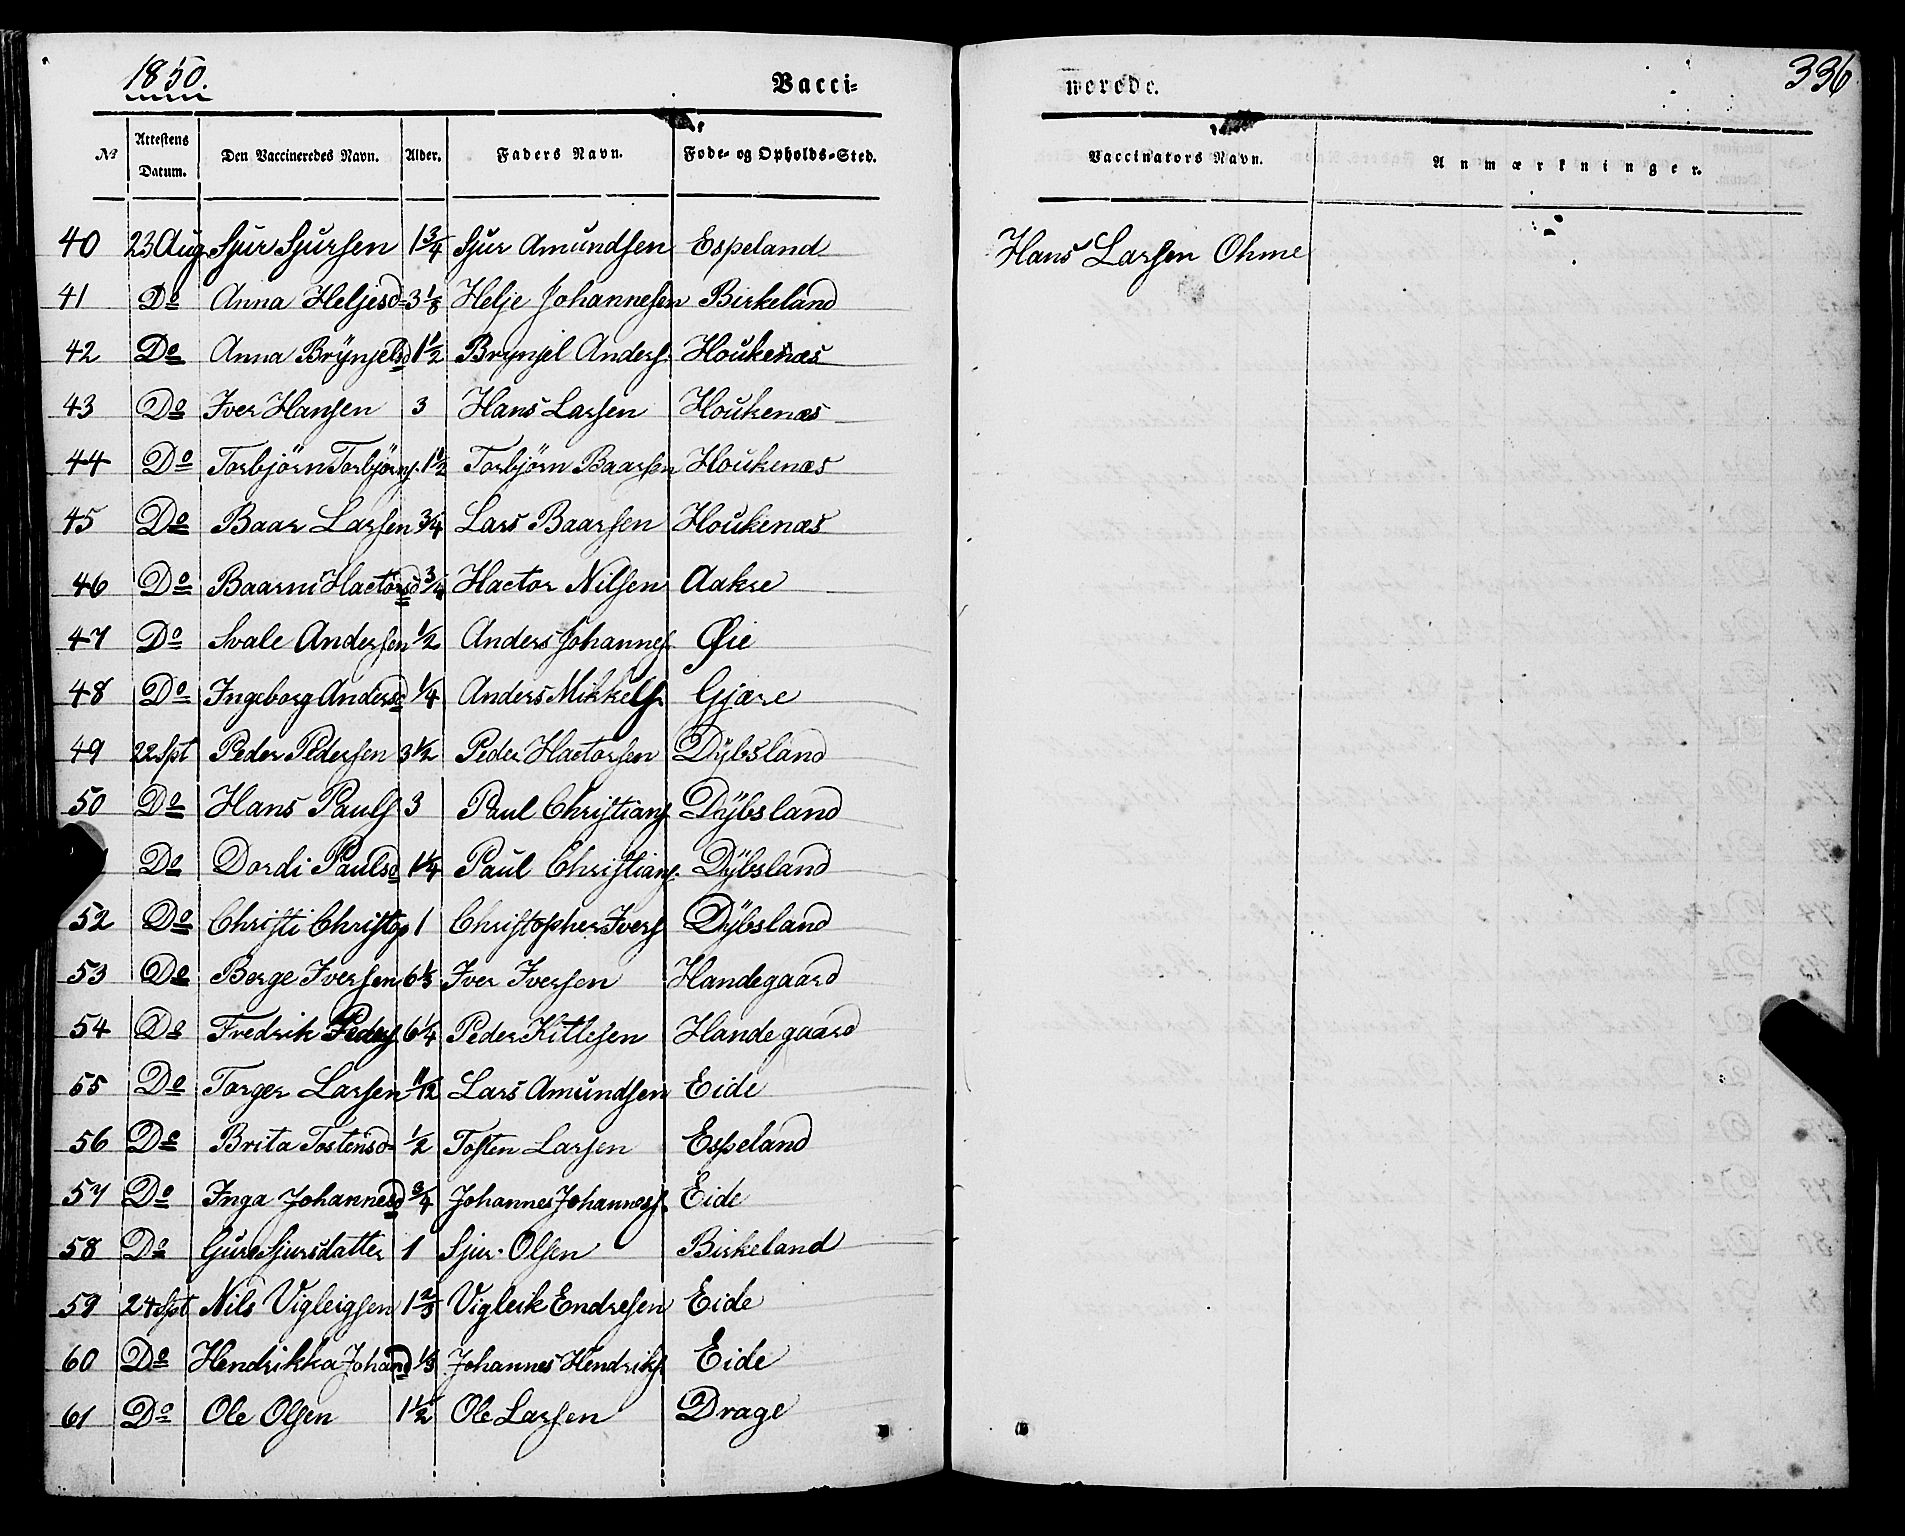 1850.
Vacci-
nerede.
336
No
Attestens Datum.
Den Vaccineredes Navn.
Alder.
Faders Navn.
Føde- og Opholds-Sted.
Vaccinators Navn.
Anmærkninger.
40 23 Aug Sjur Sjursen 1 3/4 Sjur Amundsen Espeland Hans Larsen Ohme
41 Do Anna Heljesd 3 1/8 Helje Johannesen Birkeland
42 Do Anna Brÿnjelsd 1 1/2 Brynjel Anders. Houkenæs
43 Do Iver Hansen 3 Hans Larsen Houkenæs
44 Do Torbjörn Torbjörns. 1 1/2 Torbjörn Baarsen Houkenæs
45 Do Baar Larsen 3/4 Lars Baarsen Houkenæs
46 Do Baarni Hactorsd 3/4 Hactor Nilsen Aakre
47 Do Svale Andersen 1/2 Anders Johannes. Øie
48 Do Ingeborg Andersd 1/4 Anders Mikkels. Gjære
49 22 Spt Peder Pedersen 3 1/2 Peder Hactorsen Dÿbsland
50 Do Hans Pauls 3 Paul Christians. Dÿbsland
Do Dordi Paulsd 1 1/4 Paul Christians. Dÿbsland
52 Do Christi Christop 1 Christopher Ivers Dÿbsland
53 Do Borge Iversen 6 1/3 Iver Iversen Handegaard
54 Do Fredrik Peders 6 1/4 Peder Kitlesen Handegaard
55 Do Torger Larsen 11/12 Lars Amundsen Eide
56 Do Brita Tostensd 1/2 Tosten Larsen Espeland
57 Do Inga Johannesd 3/4 Johannes Johanness. Eide
58 Do Guro Sjursdatter 1 Sjur Olsen Birkeland
59 24 Spt Nils Vigleigsen 1 2/3 Vigleik Endresen Eide
60 Do Hendrikka Johand 1/3 Johannes Hendriks. Eide
61 Do Ole Olsen 1 1/2 Ole Larsen Drage